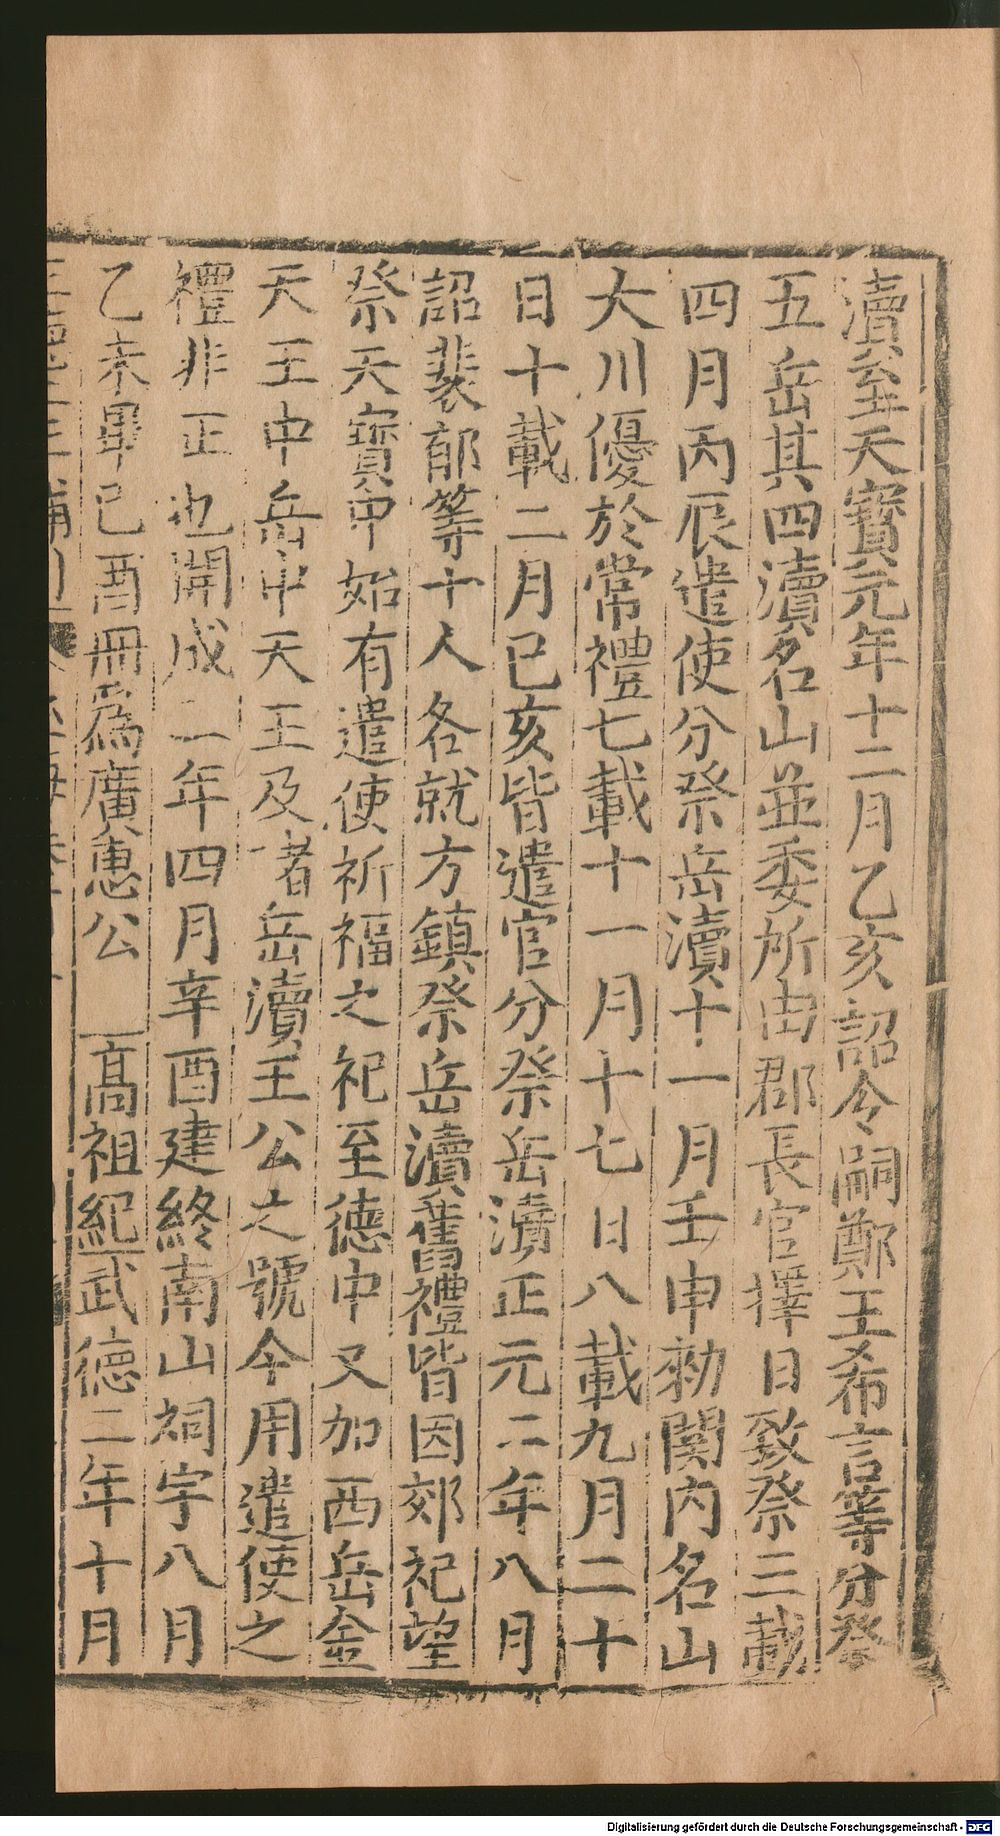 瀆至天寶元年十二月乙亥詔令嗣鄭王希言等分祭
五岳其四瀆名山並委所由郡長官擇日致祭三載
四月丙辰遣使分祭岳瀆十一月壬申勑関内名山
大川優於常禮七載十一月十七日八載九月二十
日十載二月已亥皆遣官分祭岳瀆正元二年八月
詔裴郁等十人各就方鎮祭岳瀆舊禮皆因郊祀望
祭天寶中始有遣使祈福之祀至德中又加西岳金
天王中岳中天王及者岳瀆王公之號今用遣使之
禮非正也開成二年四月辛酉建終南山祠宇八月
乙未畢已酉冊爲廣惠公 高祖紀武德二年十月
Digitalisierung gefördert durch die Deutsche Forschungsgemeinschaft - DFG